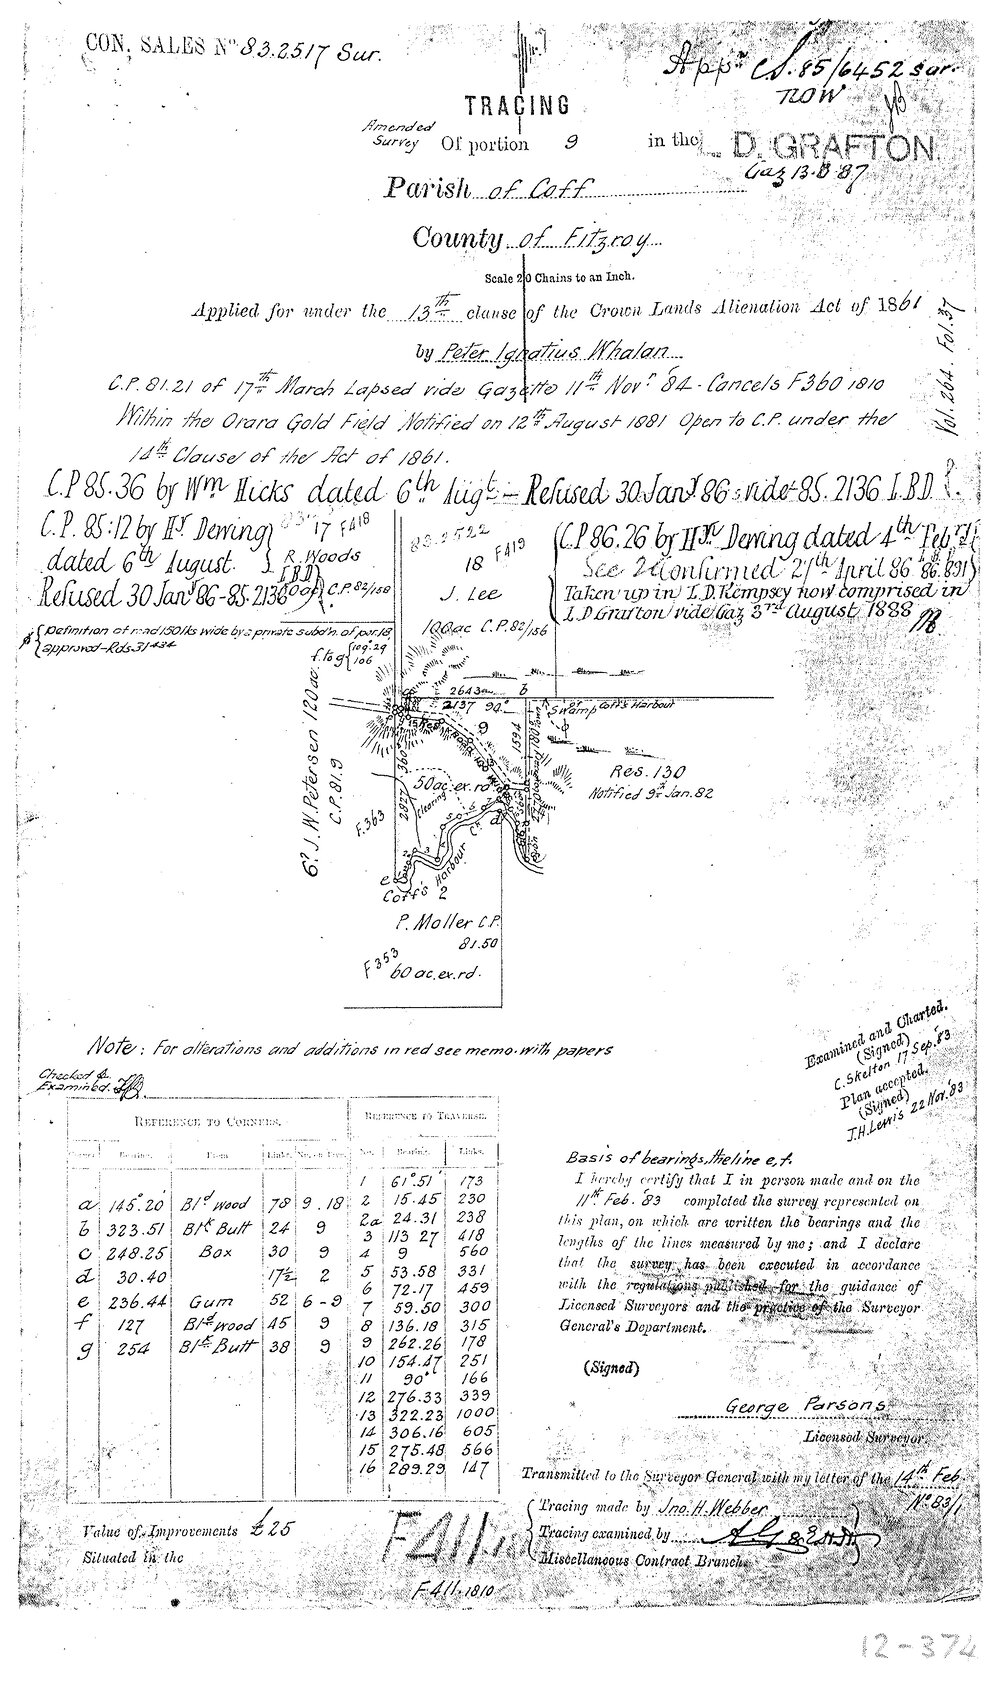 CON. SALES No 83.2517 Sur.
Appn CS. 85/6452 sur.
now
TRACING
Amended
Survey
Of portion 9 in the L. D. GRAFTON.
Gaz 13.8.87
Parish of Coff
County of Fitzroy
Scale 20 Chains to an Inch.
Applied for under the 13th clause of the Crown Lands Alienation Act of 1861
by Peter Ignatius Whalan
Vol. 264. Fol. 37
C.P. 81.21 of 17th March Lapsed vide Gazette 11th Novr '84 - Cancels F360 1810
Within the Orara Gold Field Notified on 12th August 1881 Open to C.P. under the
14th Clause of the Act of 1861.
C.P 85.36 by Wm Hicks dated 6th Augt - Refused 30 Jany 86 vide 85.2136 L.B.D
C.P. 85:12 by Hy Dewing
dated 6th August.
Refused 30 Jany 86-85.2136 L.B.D
17 F418
R. Woods
C.P. 82/158
83.2522
18 F419
J. Lee
100ac C.P. 82/156
C.P. 86.26 by Hy Dewing dated 4th Feby
Confirmed 21th April 86. 86.891
Taken up in L.D. Kempsey now comprised in
L.D Grafton vide Gaz 3rd August 1888
Definition of road 150 lks wide by a private subdn. of por. 18
approved-Rds. 31434
f. to g 109.29
106
2643
b
2137 90°
9
Swamp
Coff's Harbour
1594
180°
360°
2827
50 ac. ex. rd.
Clearing
Res. 130
Notified 9th Jan. 82
6? J.W. Petersen 120ac.
C.P. 81.9
F.363
d
e
Coff's Harbour Ck
2
P. Moller C.P.
81.50
F353
60 ac. ex. rd.
Note: For alterations and additions in red see memo. with papers
Checked &
Examined.
Examined and Charted.
(Signed)
C. Skelton 17 Sep. '83
Plan accepted.
(Signed)
J.H. Lewis 22 Nov. '83
REFERENCE TO CORNERS.
Corner Bearing. From Links. No. on Tree.
a 145.20' Bld wood 78 9.18
b 323.51 Blk Butt 24 9
c 248.25 Box 30 9
d 30.40 17½ 2
e 236.44 Gum 52 6-9
f 127 Bld wood 45 9
g 254 Blk Butt 38 9
REFERENCE TO TRAVERSE.
No. Bearing. Links.
1 61°.51' 173
2 15.45 230
2a 24.31 238
3 113 27 418
4 9 560
5 53.58 331
6 72.17 459
7 59.50 300
8 136.18 315
9 262.26 178
10 154.47 251
11 90° 166
12 276.33 339
13 322.23 1000
14 306.16 605
15 275.48 566
16 289.29 147
Basis of bearings, the line e, f.
I hereby certify that I in person made and on the
11th Feb. '83 completed the survey represented on
this plan, on which are written the bearings and the
lengths of the lines measured by me; and I declare
that the survey has been executed in accordance
with the regulations published for the guidance of
Licensed Surveyors and the practice of the Surveyor
General's Department.
(Signed)
George Parsons
Licensed Surveyor.
Transmitted to the Surveyor General with my letter of the 14th Feb.
No 83/1
Tracing made by Jno. H. Webber
Tracing examined by
Miscellaneous Contract Branch.
Value of Improvements £25
Situated in the
F411.1810
F411.1810
12-374